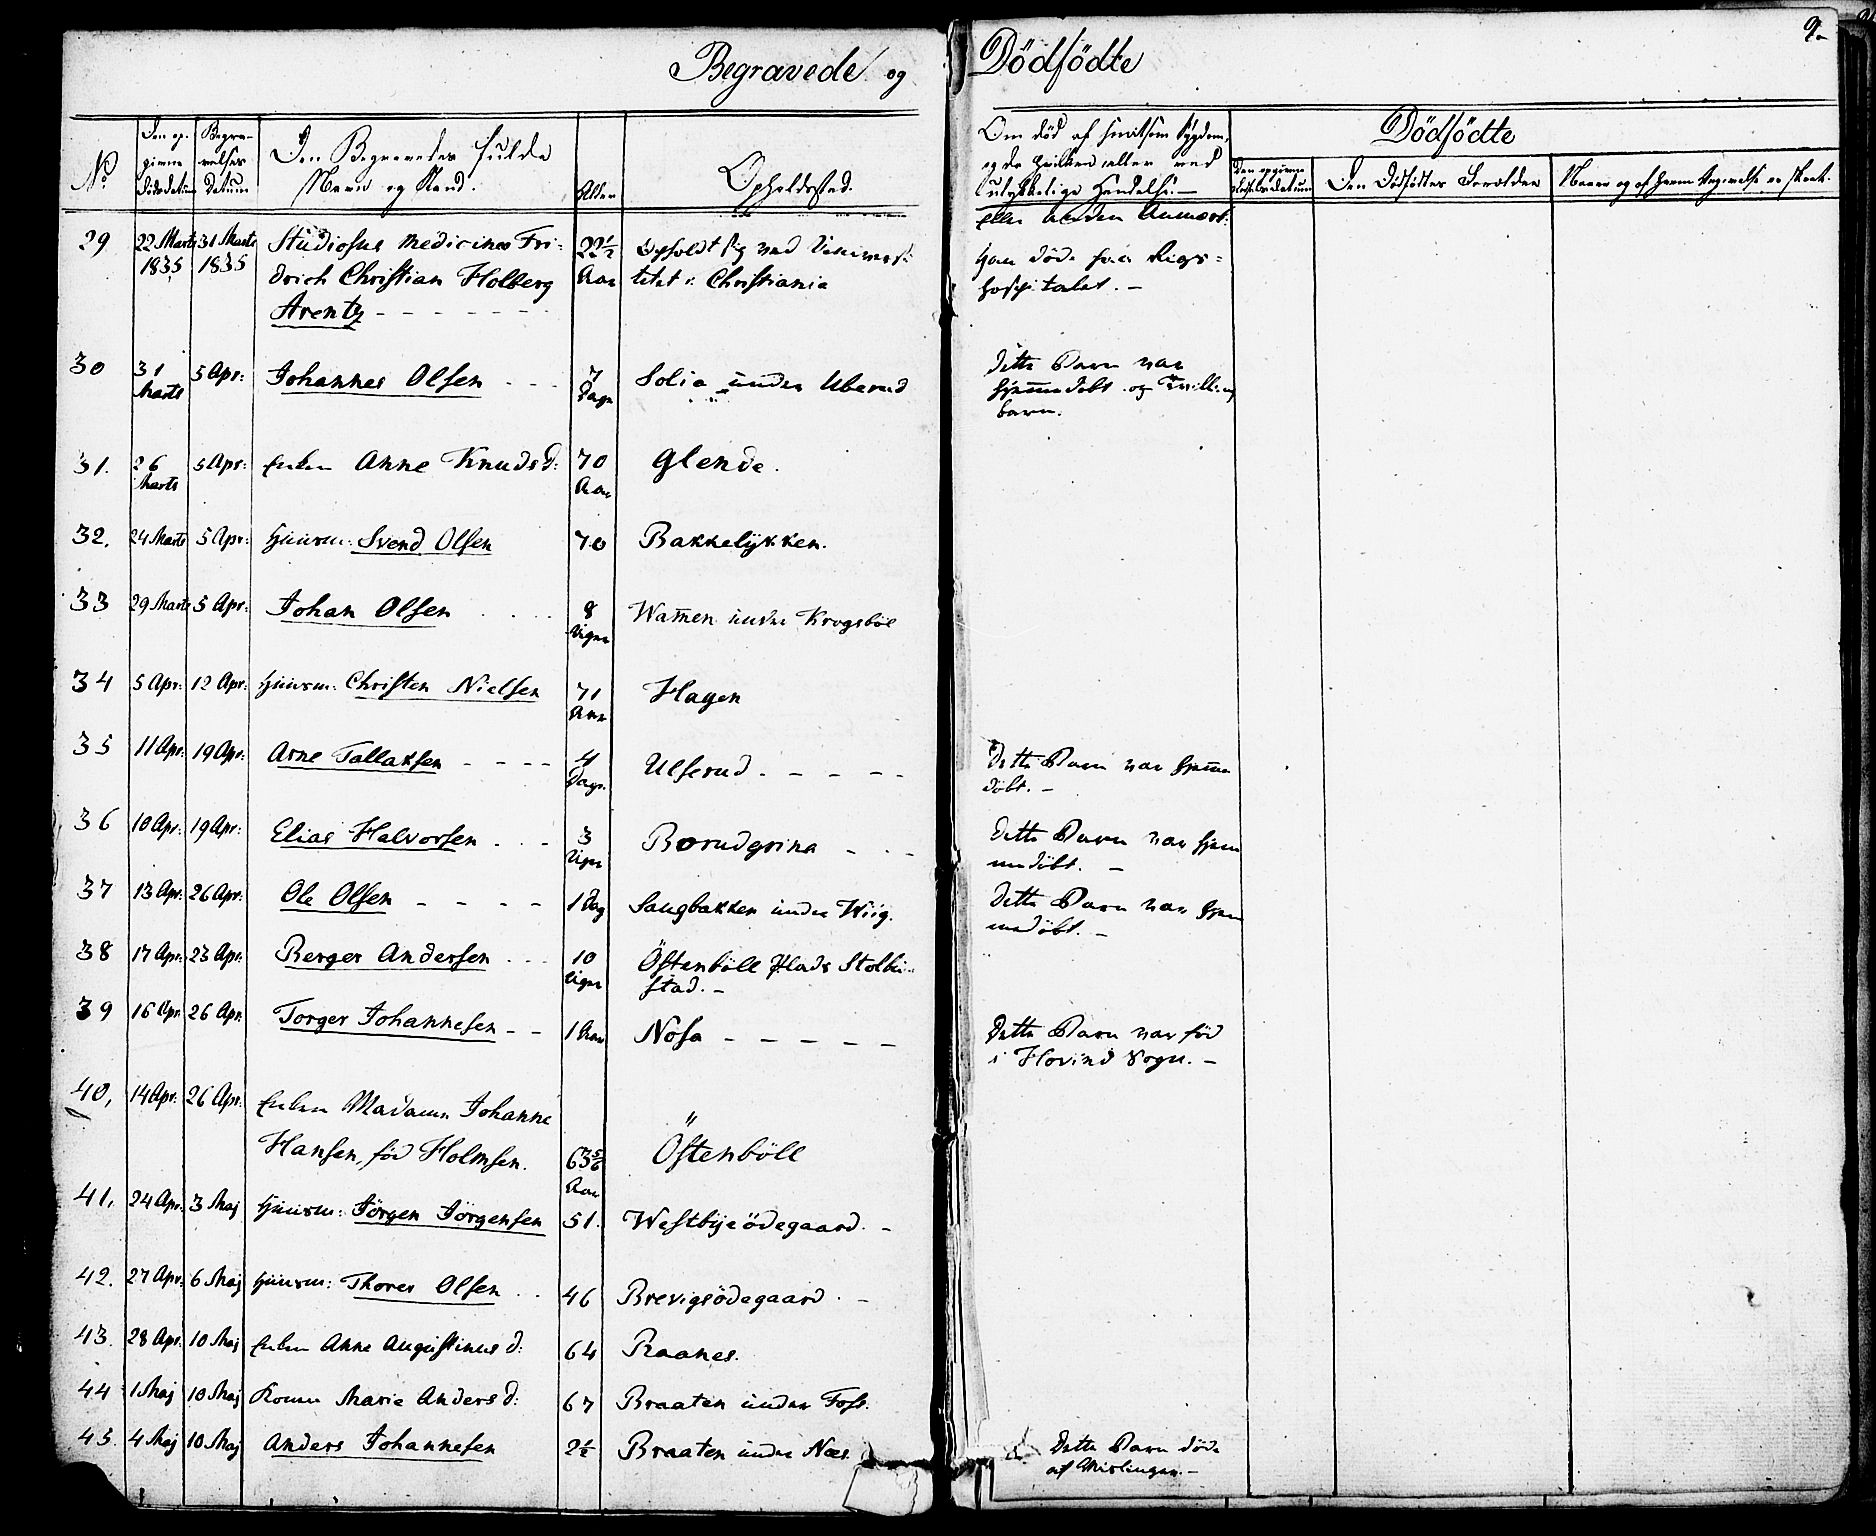 Begravede og Dödfödte
9.
No
Den op-
givne
Dödsdatum
Begra-
velses
Datum
Den Begravedes fulde
Navn og Stand.
Alder
Opholdssted.
Om död af smitsom Sygdom,
og da hvilken eller ved
ulykkelig Hendelse. —
eller anden Anmærk:
Dödfödte
Den opgivne
Dödfödte Datum
Den Dödfödtes Forældre
Navn og af hvem Angivelse er skeet.
29 22 Marts 31 Marts Studiosus medicinæ Fri- 22½ Opholdt sig ved Universi-
1835 1835 drich Christian Holberg Aar tetet i Christiania
Arentz
Han döde paa Rigs-
hospitalet. —
30 31 5 Apr: Johannes Olsen 7 Solia under Uberud
Marts Dage
dette Barn var
hjemmedöbt og Tvilling
barn.
31. 26 5 Apr: Enken Anne Knuds d: 70 Glende.
Marts Aar
32. 24 Marts 5 Apr: Huusm: Svend Olsen 70 Bakkelykken.
33 29 Marts 5 Apr: Johan Olsen 8 Wamen under Krogsböe
Uger
34 5 Apr: 12 Apr: Huusm: Christen Nielsen 71 Hagen
Aar
35 11 Apr: 19 Apr: Arne Tallaksen 4 Ulserud
Dage
Dette Barn var hjemme
döbt. —
36 10 Apr: 19 Apr: Elias Halvorsen 3 Borudgrina
Uger
Dette Barn var hjem
medöbt. —
37 13 Apr: 26 Apr: Ole Olsen 1 Dag Saugbakken under Wiig.
Dette Barn var hjem
medöbt. —
38 17 Apr: 23 Apr: Berger Andersen 10 Östenböll Plads Stolbu-
Uger stad. —
39 16 Apr: 26 Apr. Torger Johannesen 1 Aar Nosa
Dette Barn var föd
i Hovind Sogn. —
40, 14 Apr: 26 Apr: Enken Madame Johanne
Hansen, föd Holmsen. 63 5/6 Östenböll
Aar
41, 24 Apr. 3 Maj Huusm: Jörgen Jörgensen 51. Westbyeödegaard. —
42. 27 Apr: 6 Maj Huusm: Thores Olsen 46 Brevigsödegaard. —
43. 28 Apr. 10 Maj Enken Anne Augustinus d: 64 Raanes.
44 1 Maj 10 Maj Konen Marie Anders d: 67 Braaten under Foss.
45. 4 Maj 10 Maj Anders Johannesen 2½ Braaten under Næs
Dette Barn döde
af Meslinger. —